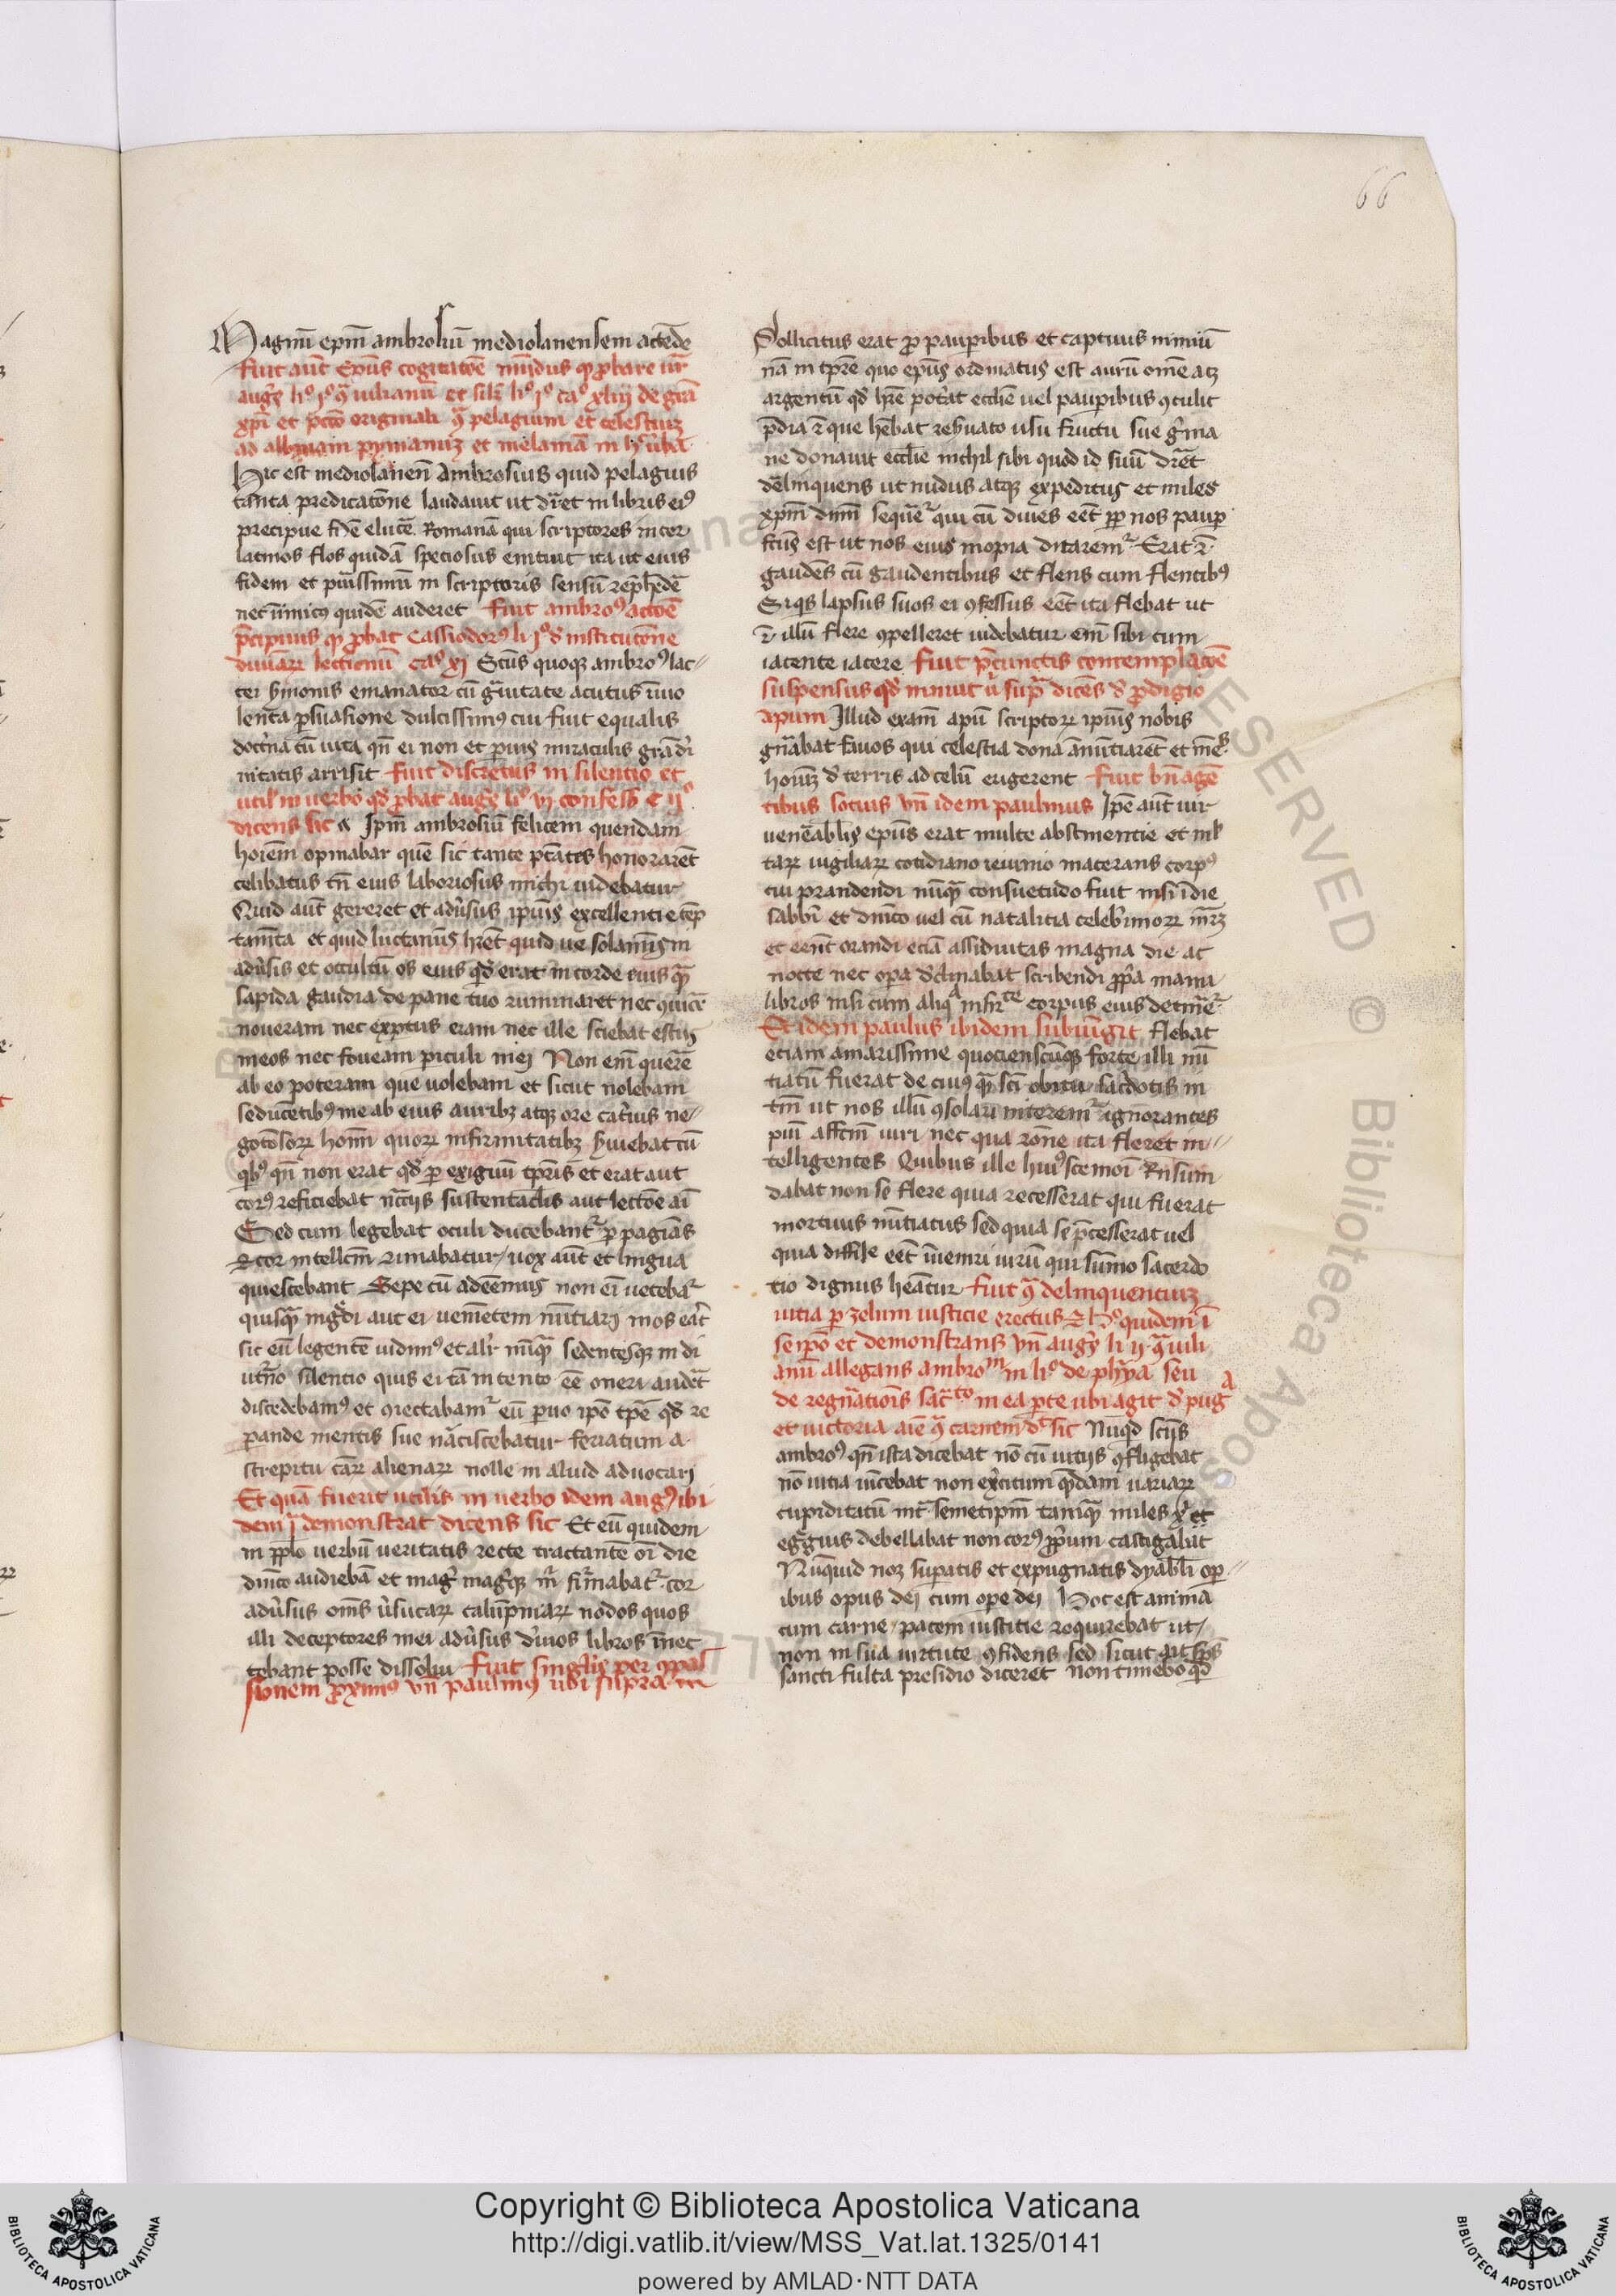 66
Magnū epm̄ ambrosiū mediolanensem actēde
fuit aūt epūs cogitatōe mūdus qͥ ꝓbare ur̄
augꝰ liᵒ jᵒ ꝯͣ iulianū et silr̄ liᵒ jᵒ caᵒ xliij de grā
xp̄i et pctō originali ꝯͣ pelagium et celestiuꝫ
ad albinam pynianuꝫ et melaniā
Hic est mediolanen̄ Ambrosius quid pelagius
tanta predicatōne laudauit ut dr̄et in libris eiꝰ
precipue fidē elucē Romanā qui scriptores inter
latinos flos quidā speciosus enituit ita ut eius
fidem et puīssimū in scripturis sensū rep̄hēdē
nec īimicꝰ quidē auderet fuit ambroꝰ actōe
p̄cipuus qͥ ꝓbat Cassiodorꝰ li jᵒ d̓ institucōne
diuinaꝝ lectionū caᵒ xj Scūs quoqꝫ ambroꝰ lac
tei s̓monis emanator cū gͣuitate acutus īuio
lenta ꝑsuasione dulcissimꝰ cui fuit equalis
doct̓na cū uita qn̄ ei non et ꝑuis miraculis grā diī
nitatis arrisit fuit discretus in silentio et
util̓ in uerbo qd̓ ꝓbat augꝰ liᵒ vj confess̄ c ijᵒ
dicens sic Ipm̄ ambrosiū felicem quendam
hoīem opinabar quē sic tante ptātes honorarēt
celibatus tn̄ eius laboriosus michi uidebatur
Quid aūt gereret et adūsus ipsiꝰ excellentie tēp
tamta et quid luctaniꝰ hr̄et quid ue solamīs in
adūsis et occultū os eius qd̓ erat in corde eius qͣ̄
sapida gaudia de pane tuo ruminaret nec ꝯiicē
noueram nec exptus eram nec ille sciebat estꝰ
meos nec foueam piculi mei Non em̄ querē
ab eo poteram que uolebam et sicut nolebam
seducētibꝰ me ab eius auribꝫ atqꝫ ore cat̓uis ne
gotōsoꝝ hom̄ quoꝝ infirmitatibꝫ s̓uiebat cū
qͥbꝰ qn̄ non erat qd̓ ꝑ exiguū tp̄ris et erat aut
corꝰ reficiebat nc̄ijs sustentaclis aut lectōe aī
Sed cum legebat oculi ducebantᷣ ꝑ pagīas
et cor intellcm̄ rimabatur uox aūt et lingua
quiescebant Sepe cū adeēmus non eī uetebaᷣ
quisqͣ̄ ingͤdi aut ei ueniētem nūtiarj mos eāt
sic eū legentē uidimꝰ et alr̄ nūqͣ̄ sedentesqꝫ in di
utr̄no silentio quis ei tā intento eē oneri audēt
discedebamꝰ et ꝯiectabamᷣ eū ꝑuo ipō tpē qd̓ re
ꝑande mentis sue nāciscebatur feriatum a
strepitu cāꝝ alienaꝝ nolle in aliud aduocarj
Et quā fuerit utilis in uerbo idem augꝰ ibi
dem qͣ̄ demonstrat dicens sic Et eū quidem
in pp̄lo uerbū ueritatis recte tractantē oī die
dnīco audiebā et magꝰ magqꝫ m̄ firmabatᷣ cor
adūsus om̄s ūsucaꝝ calūpniaꝝ nodos quos
illi deceptores mei adūsus d̓uios libros īnec
tebant posse dissolui fuit singlis per ꝯpas
sionem ꝓximꝰ vn̄ paulinꝰ ubi supra
Sollicitus erat ꝓ pauꝑibus et captiuis nimiū
nā in tp̄re quo epūs ordinatus est aurū om̄e atꝫ
argentū qd̓ hr̄e pot̓at ecclīe uel pauꝑibus ꝯtulit
p̄dia et que hēbat res̓uato usu fructu sue gͤma
ne donauit ecclīe nichil sibi quod id suū dr̄et
dēlinquens ut nudus atqꝫ expeditus et miles
xp̄m dnm̄ sequēᷣ qui cū diues eēt ꝓp nos pauꝑ
fcūs est ut nos eius inopia ditaremᷣ Erat et
gaudēs cū gaudentibus et flens cum flentibꝰ
Si qͥs lapsus suos ei ꝯfessus eēt ita flebat ut
et illū flere ꝯpelleret uidebatur em̄ sibi cum
iacente iacere fuit p̄cunctis contemplacōe
suspensus qd̓ innuit ū supͣ dicēs d̓ ꝓdigio
apum Illud exam̄ apū scriptoꝝ ipsius nobis
gn̄abat fauos qui celestia dona ānūtiarēt et mēs
hoīuꝫ d̓ terris ad celū erigerent fuit bn̄ agē
tibus socius vn̄ idem paulinus Ipē aūt uir
uenēablis epūs erat multe abstinentie et ml̓
taꝝ uigiliaꝝ cotidiano ieiunio macerans corpꝰ
cui prandendi nūqͣ̄ consuetudo fuit nisi ī die
sabbī et dnīco uel cū natalitia celebrimoꝝ mrꝫ
et eent orandi eciā assiduitas magna die ac
nocte nec opa d̓clinabat scribendi ꝓpͥa manu
libros nisi cum aliqͣ infirᵗᵉ corpus eius detinēᷣ
Et idem paulus ibidem subiūgit flebat
etiam amarissime quocienscūqꝫ forte illi nū
tiatū fuerat de cuiꝰ qͣ̄ scī obitu sac̓dotis in
tm̄ ut nos illū ꝯsolari niteremᷣ ignorantes
piū affcm̄ uiri nec qua rōne ita fleret in
telligentes Quibus ille huiꝰscemoī Rn̄sum
dabat non se flere quia recesserat qui fuerat
mortuus nūtiatus sed quia se p̄cesserat uel
quia diffīle eēt īueniri uirū qui sūmo sacerdo
tio dignus hēatur fuit ꝯͣ delinquentuiꝫ
uitia ꝑ zelum iusticie erectus et hᵒ quidem ī
se ipō et demonstrans vn̄ augꝰ li ij ꝯͣ iuli
anū allegans ambroᵐ in liᵒ de phīa seu
de regn̄ationis sacᵗᵒ in ea pͤte ubi agit d̓ pugᵃ
et uictoria aīe ꝯͣ carnem dᵗ sic Nūqͥd scūs
ambroꝰ qn̄ ista dicebat nō cū uitijs ꝯfligebat
nō uitia uīcebat non exc̓itum qͣ̄dam uariaꝝ
cupiditatū int̓ semetipm̄ tamqͣ̄ miles xͥ et
egͤgius debellabat non corꝰ ꝓpͥum castigabat
Nūquid noꝫ supatis et expugnatis dyablī oꝑ
ibus opus dej cum ope dej Hoc est animā
cum carne pacem iustitie requirebat ut
non in sua uirtute ꝯfidens sed sicut ait sp̄s
sancti fulta presidio diceret non timebo qͥd
Copyright © Biblioteca Apostolica Vaticana
http://digi.vatlib.it/view/MSS_Vat.lat.1325/0141
powered by AMLAD·NTT DATA
BIBLIOTECA APOSTOLICA VATICANA
BIBLIOTECA APOSTOLICA VATICANA